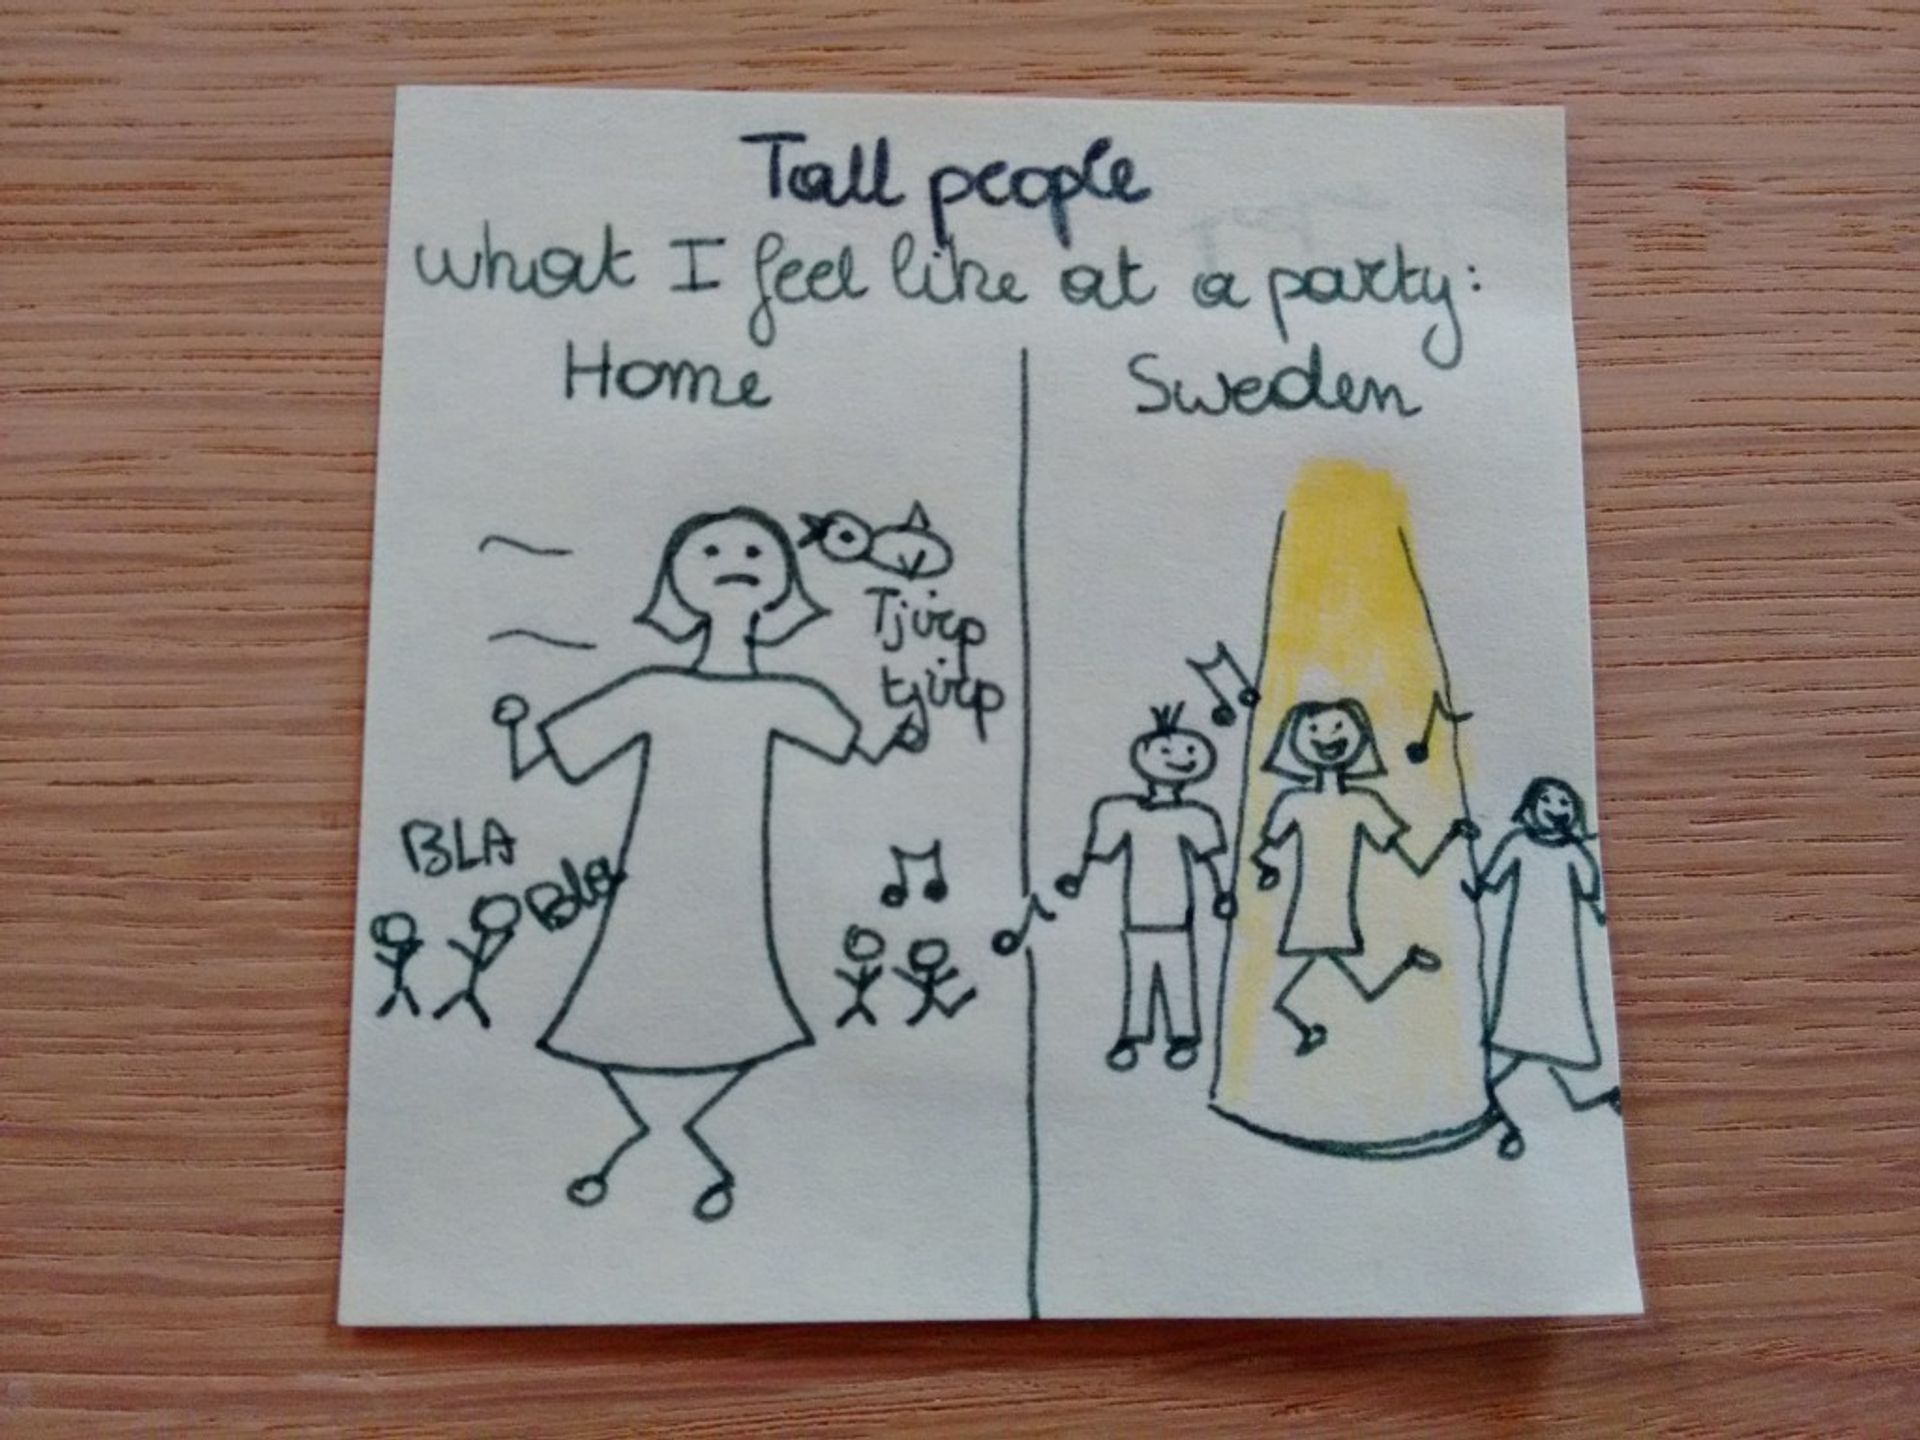 Tall people
what I feel like at a party:
Home
Sweden
Tjirp
tjirp
BLA
Bla